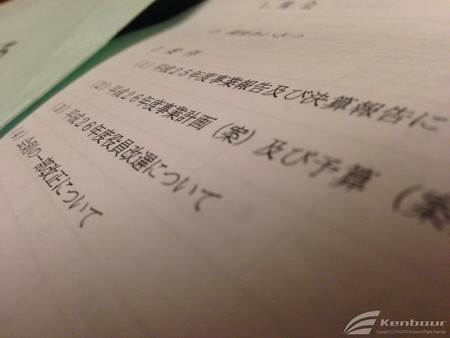 1.開会
3.案件
(1)平成25年度事業報告及び決算報告に
(2)平成26年度事業計画(案)及び予算(案
(3)平成26年度役員改選について
(4)会則の一部改正について
Kenbour